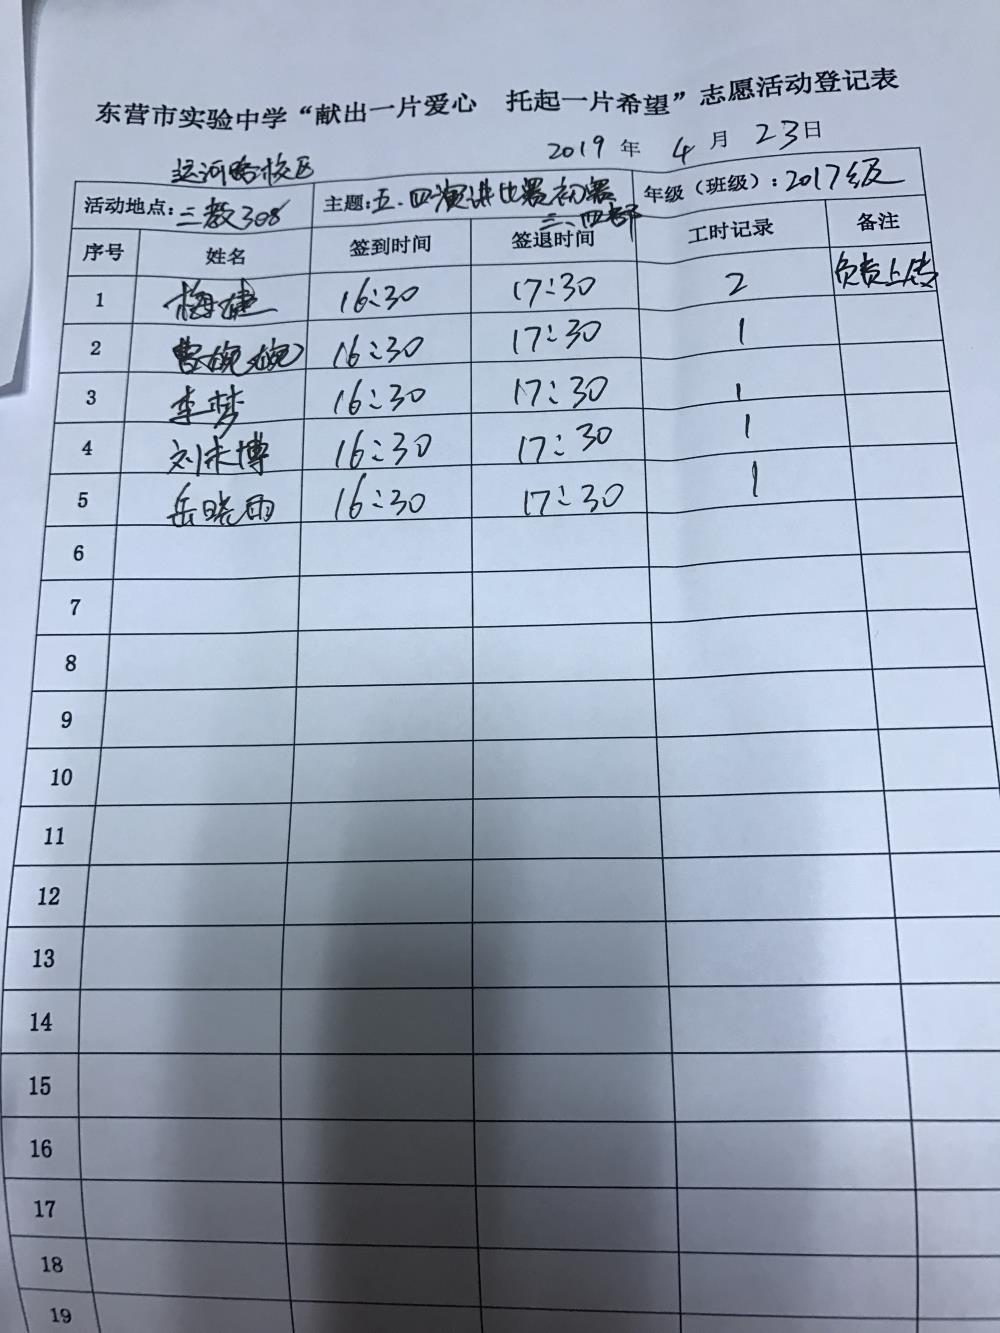 东营市实验中学“献出一片爱心 托起一片希望”志愿活动登记表
2019 年 4 月 23 日
运河路校区
活动地点: 三教308 主题: 五.四演讲比赛初赛 年级（班级）: 2017级
三、四部
序号 姓名 签到时间 签退时间 工时记录 备注
1 梅健 16:30 17:30 2 负责上传
2 曹婉婉 16:30 17:30 1
3 李梦 16:30 17:30 1
4 刘未博 16:30 17:30 1
5 岳晓雨 16:30 17:30 1
6
7
8
9
10
11
12
13
14
15
16
17
18
19